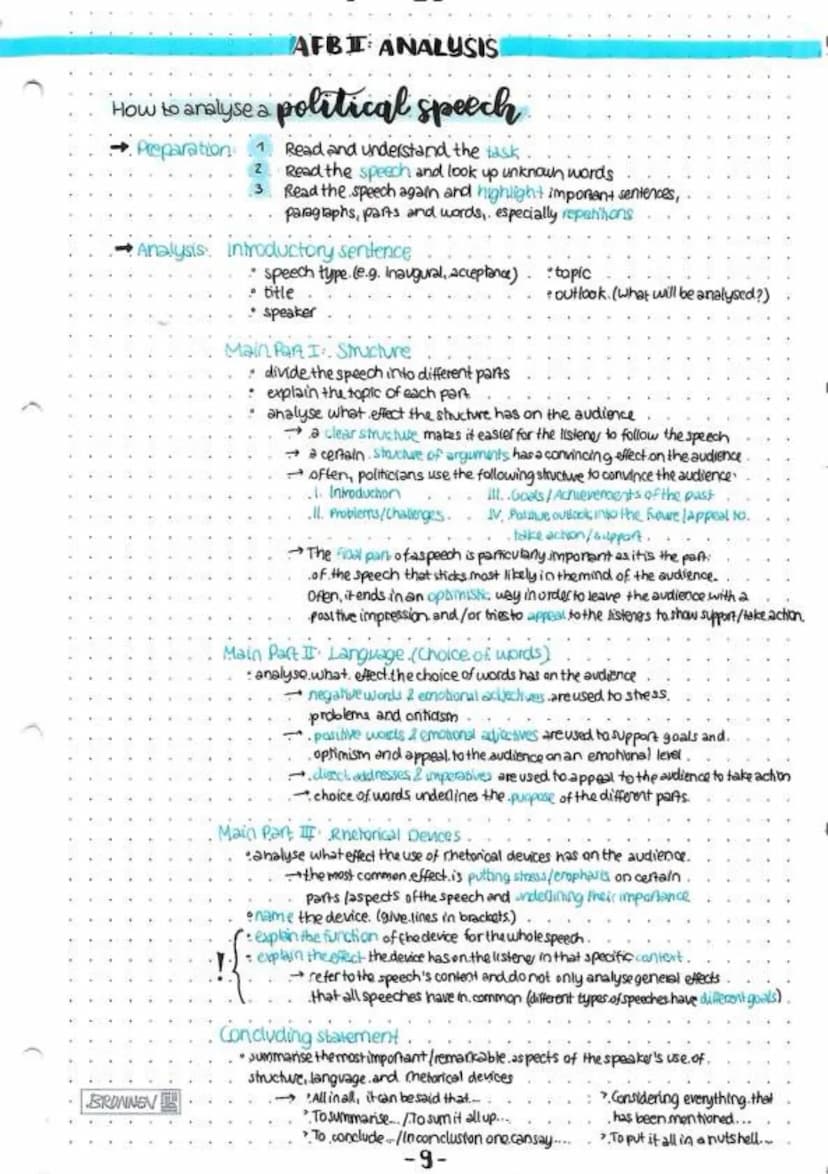 AFB II: ANALYSIS
How to analyse a political speech
→ Preparation: 1 Read and understand the task
2 Read the speech and look up unknown words
3 Read the speech again and highlight important sentences,
paragraphs, parts and words, especially repetitions
→ Analysis: Introductory sentence
• speech type (e.g. inaugural, acceptance) • topic
• title • outlook (what will be analysed?)
• speaker
Main Part I: Structure
• divide the speech into different parts
• explain the topic of each part
• analyse what effect the structure has on the audience
→ a clear structure makes it easier for the listener to follow the speech
→ a certain structure of arguments has a convincing effect on the audience
→ often, politicians use the following structure to convince the audience:
I. Introduction III. Goals / Achievements of the past
II. Problems/Challenges IV. Positive outlook into the future / appeal to
take action / support
→ The final part of a speech is particularly important as it is the part
of the speech that sticks most likely in the mind of the audience.
Often, it ends in an optimistic way in order to leave the audience with a
positive impression and / or tries to appeal to the listeners to show support/take action.
Main Part II: Language (Choice of words)
• analyse what effect the choice of words has on the audience
→ negative words & emotional adjectives are used to stress
problems and criticism
→ positive words & emotional adjectives are used to support goals and
optimism and appeal to the audience on an emotional level
→ direct addresses & imperatives are used to appeal to the audience to take action
→ choice of words underlines the purpose of the different parts
Main Part III: Rhetorical Devices
• analyse what effect the use of rhetorical devices has on the audience.
→ the most common effect is putting stress/emphasis on certain
parts / aspects of the speech and underlining their importance
• name the device (give lines in brackets)
! • explain the function of the device for the whole speech
• explain the effect the device has on the listener in that specific context.
→ refer to the speech's content and do not only analyse general effects
that all speeches have in common (different types of speeches have different goals)
Concluding statement
• summarise the most important/remarkable aspects of the speaker's use of
structure, language and rhetorical devices
→ • All in all, it can be said that... • Considering everything that
• To summarise... / To sum it all up... has been mentioned...
• To conclude... / In conclusion one can say.... • To put it all in a nutshell...
BRUNNEN
- 9 -